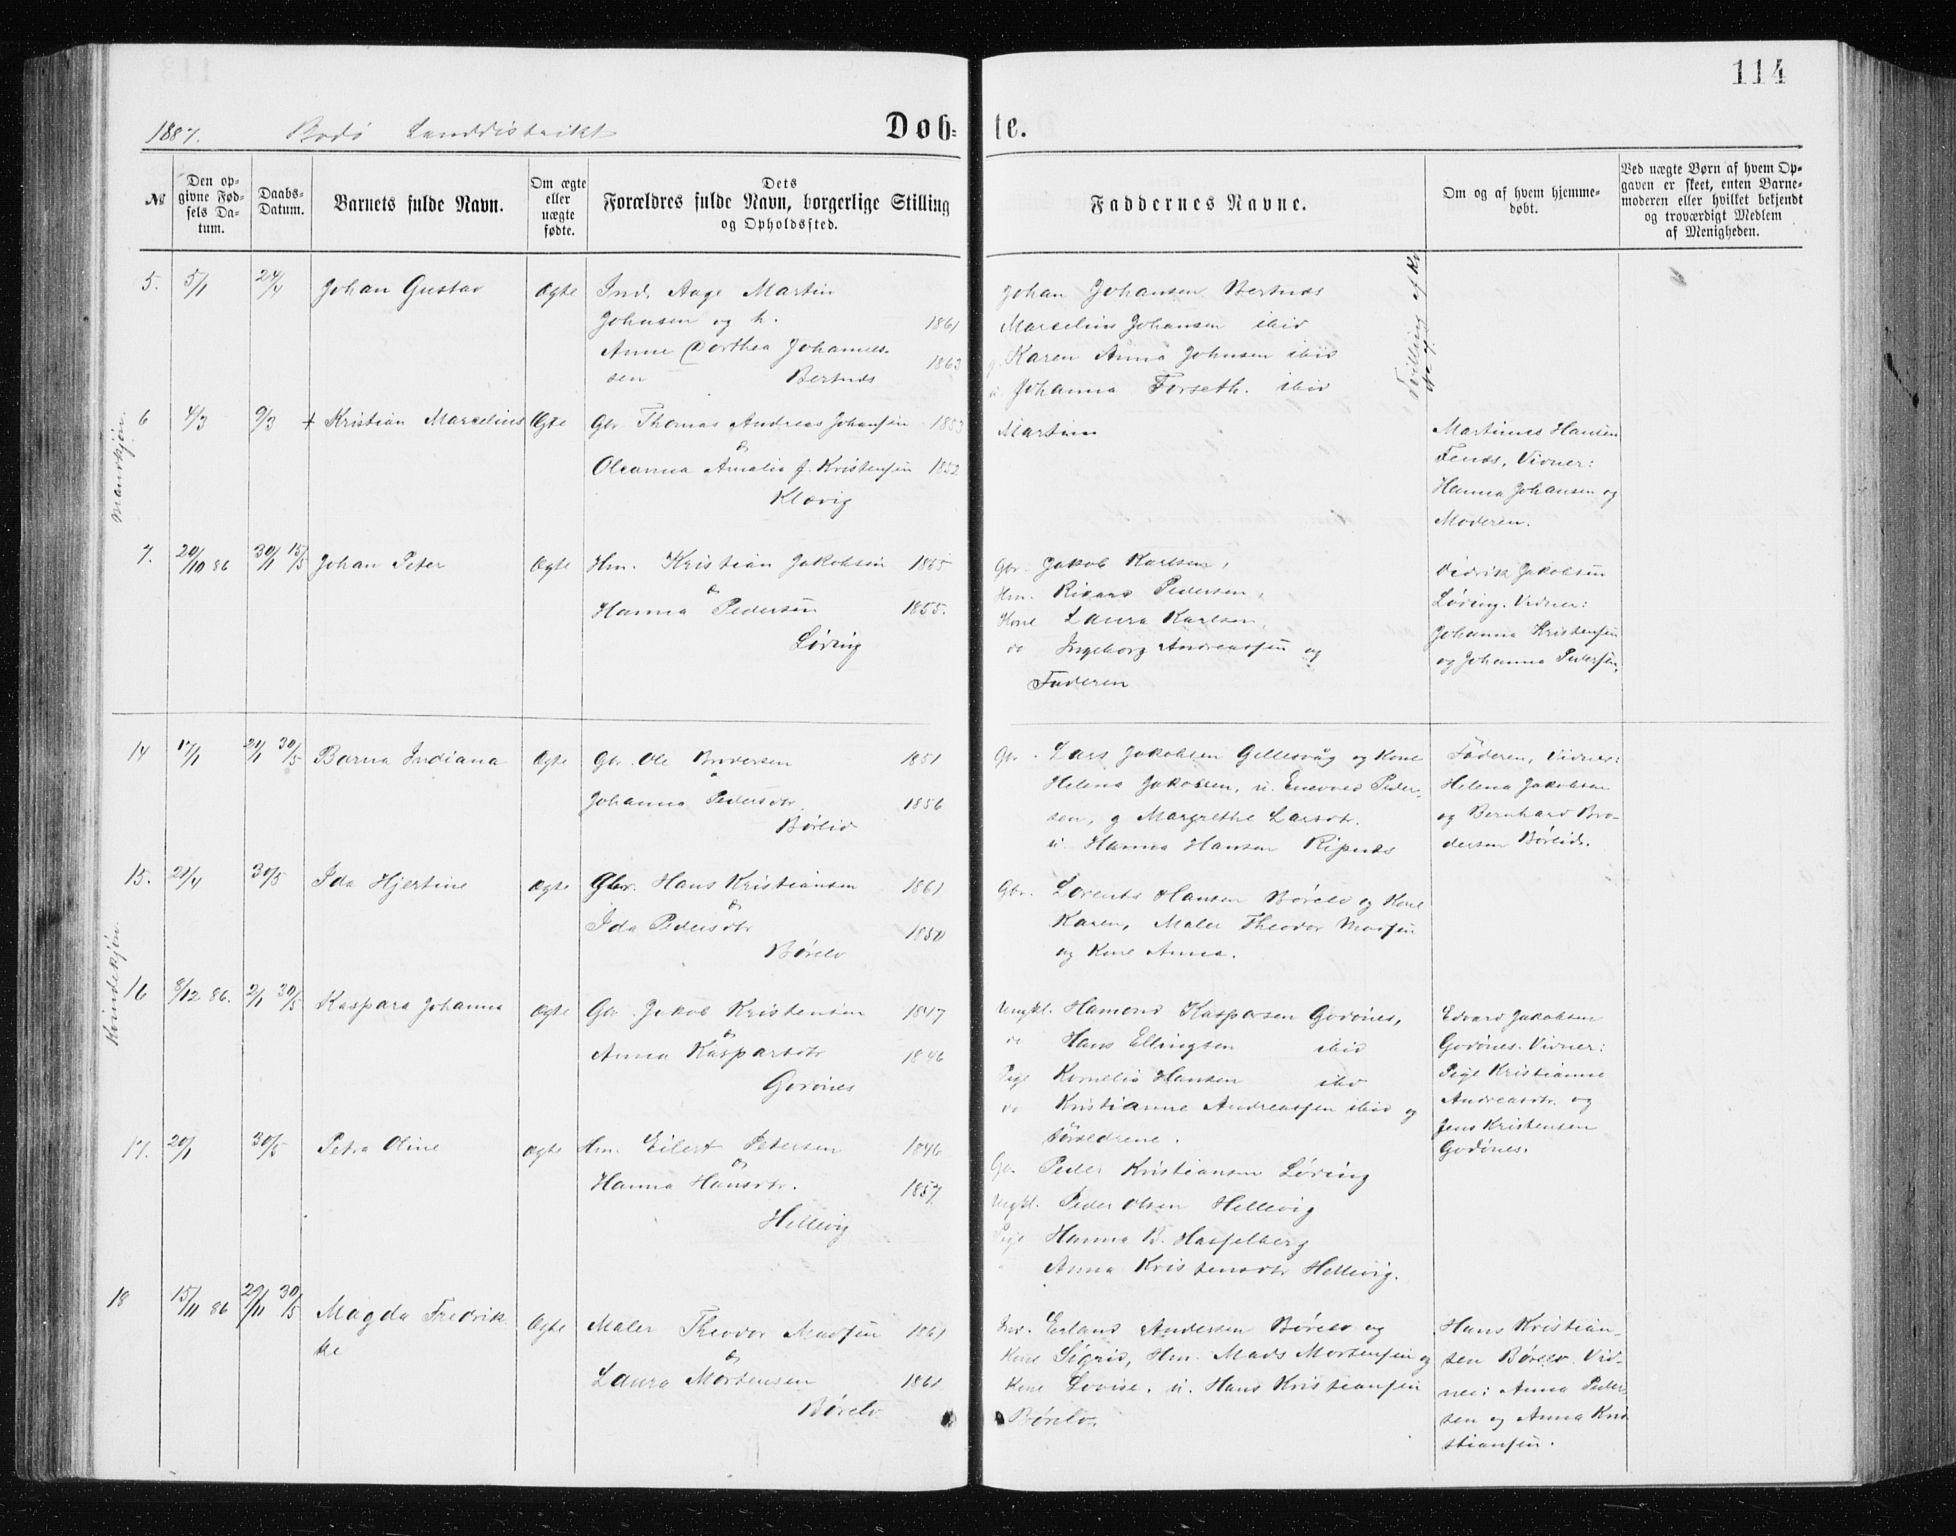 114
1887. Bodö Landdistrikt
Döb=te.
No
Den opgivne Fødsels Datum.
Daabs-Datum.
Barnets fulde Navn.
Om ægte eller uægte fødte.
Dets Forældres fulde Navn, borgerlige Stilling og Opholdssted.
Faddernes Navne.
Om og af hvem hjemmedøbt.
Ved uægte Børn af hvem Opgaven er skeet, enten Barnemoderen eller hvilket bekjendt og troværdigt Medlem af Menigheden.
Mandkjøn.
5. 5/1 24/4 Johan Gustav Ægte Ind. Aage Martin
Johnsen og h. 1861
Anne Dorthea Johannes-
sen Bertnes 1863
Johan Johansen Bertnes
Marselius Johansen ibid
g. Karen Anna Johnsen ibid
u Johanna Forseth. ibid
6 4/3 9/3 + Kristian Marselius Ægte Gbr Thomas Andreas Johansen 1853
&
Oleanna Amalia f. Kristensen 1852
Klævig
Martinus Hansen
Vidner:
Hanna Johansen og
Moderen.
7. 20/10 86 30/11 15/5 Johan Peter Ægte Hm. Kristian Jakobsen 1855
&
Hanna Pedersen 1855.
Løding
Gbr. Jakob Karlsen,
Hm. Rikard Pedersen,
Kone Laura Karlsen,
do Ingeborg Andreassen og
Faderen
Didrik Jakobsen
Løding. Vidner:
Johanna Kristensen
og Johanna Pedersen.
Kvindekjøn.
14 17/1 21/1 30/5 Barna Indiana Ægte Gbr. Ole Brodersen 1851
&
Johanna Pedersdtr. 1856
Børlid
Gbr. Lars Jakobsen Gillesvåg og Kone
Helena Jakobsen, u. Enevold Peder-
sen, g Margrethe Larsdt.
u. Hanna Hansen Ripnes
Faderen, Vidner:
Helena Jakobsen
og Bernhard Bro-
dersen Børlid.
15. 21/4 30/5 Ida Hjertine Ægte Gbr. Hans Kristiansen 1861
&
Ida Pedersdtr
Børelv
Gbr. Lorents Hansen Børelv og Kone
Karen, Maler Theodor Madsen
og Kone Anna.
16 8/12 86. 2/1 30/5 Kaspara Johanna Ægte Gbr. Jakob Kristensen 1847
&
Anna Kaspersdtr 1846
Godønes
Ungkl. Hamond Kaspersen Godønes,
do Hans Ellingsen ibid
Pige Kornelia Hansen ibd
do Kristianne Andreassen ibid og
Forældrene.
Edvard Jakobsen
Godønes. Vidner:
Pige Kristianne
Andreasdtr. og
Jens Kristensen
Godønes.
17. 20/1 30/5 Petra Oline Ægte Hm. Eilert Petersen 1846
&
Hanna Hansdtr. 1857
Hellevig
Gbr. Peder Kristiansen Løding
Ungkl. Peder Olsen Hellevig
Pige Hanna B. Hasselberg
Anna Kristensdtr Hellevig.
18 15/11 86 29/11 30/5 Magda Fredrik-
ke Ægte Maler Theodor Madsen 1861
&
Laura Mortensen 1861
Børelv
Ind. Erland Andersen Børelv og
Kone Sigrid, Hm. Mads Mortensen og
Kone Lovise, u. Hans Kristiansen
Børelv.
Hans Kristian-
sen Børelv. Vid-
ner: Anna Peder-
sen og Anna Kri-
stiansen.